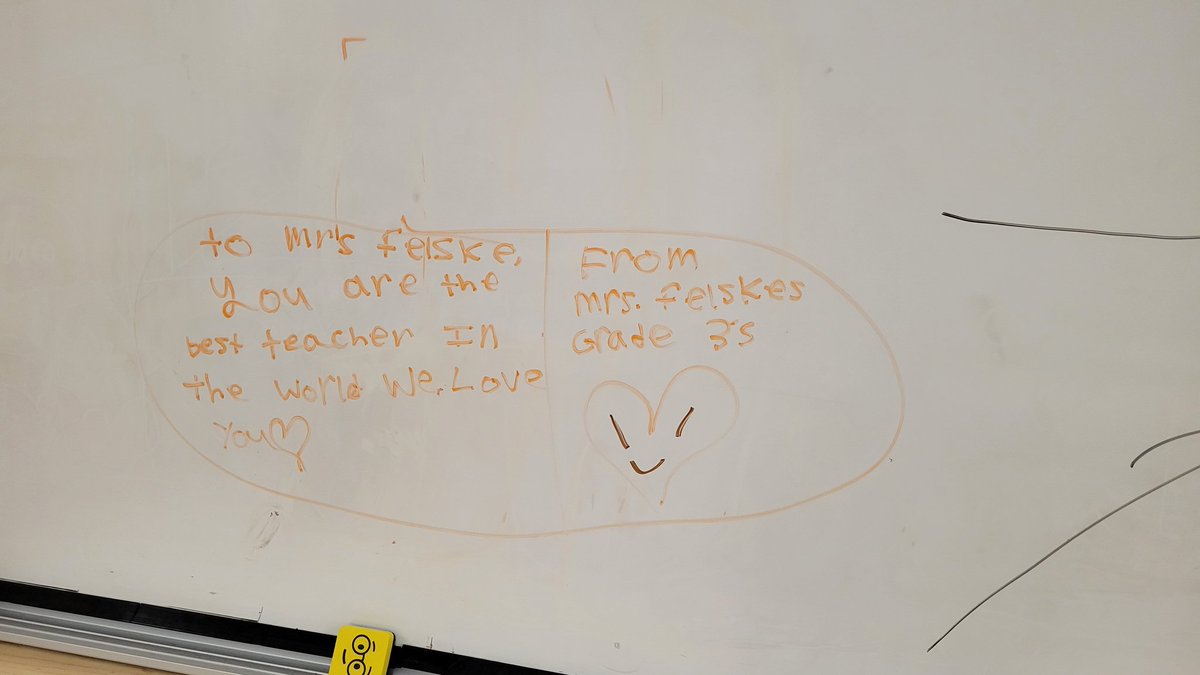 to mr's felske,
you are the
best teacher In
the world We. Love
You
From
mrs. felskes
Grade 3's